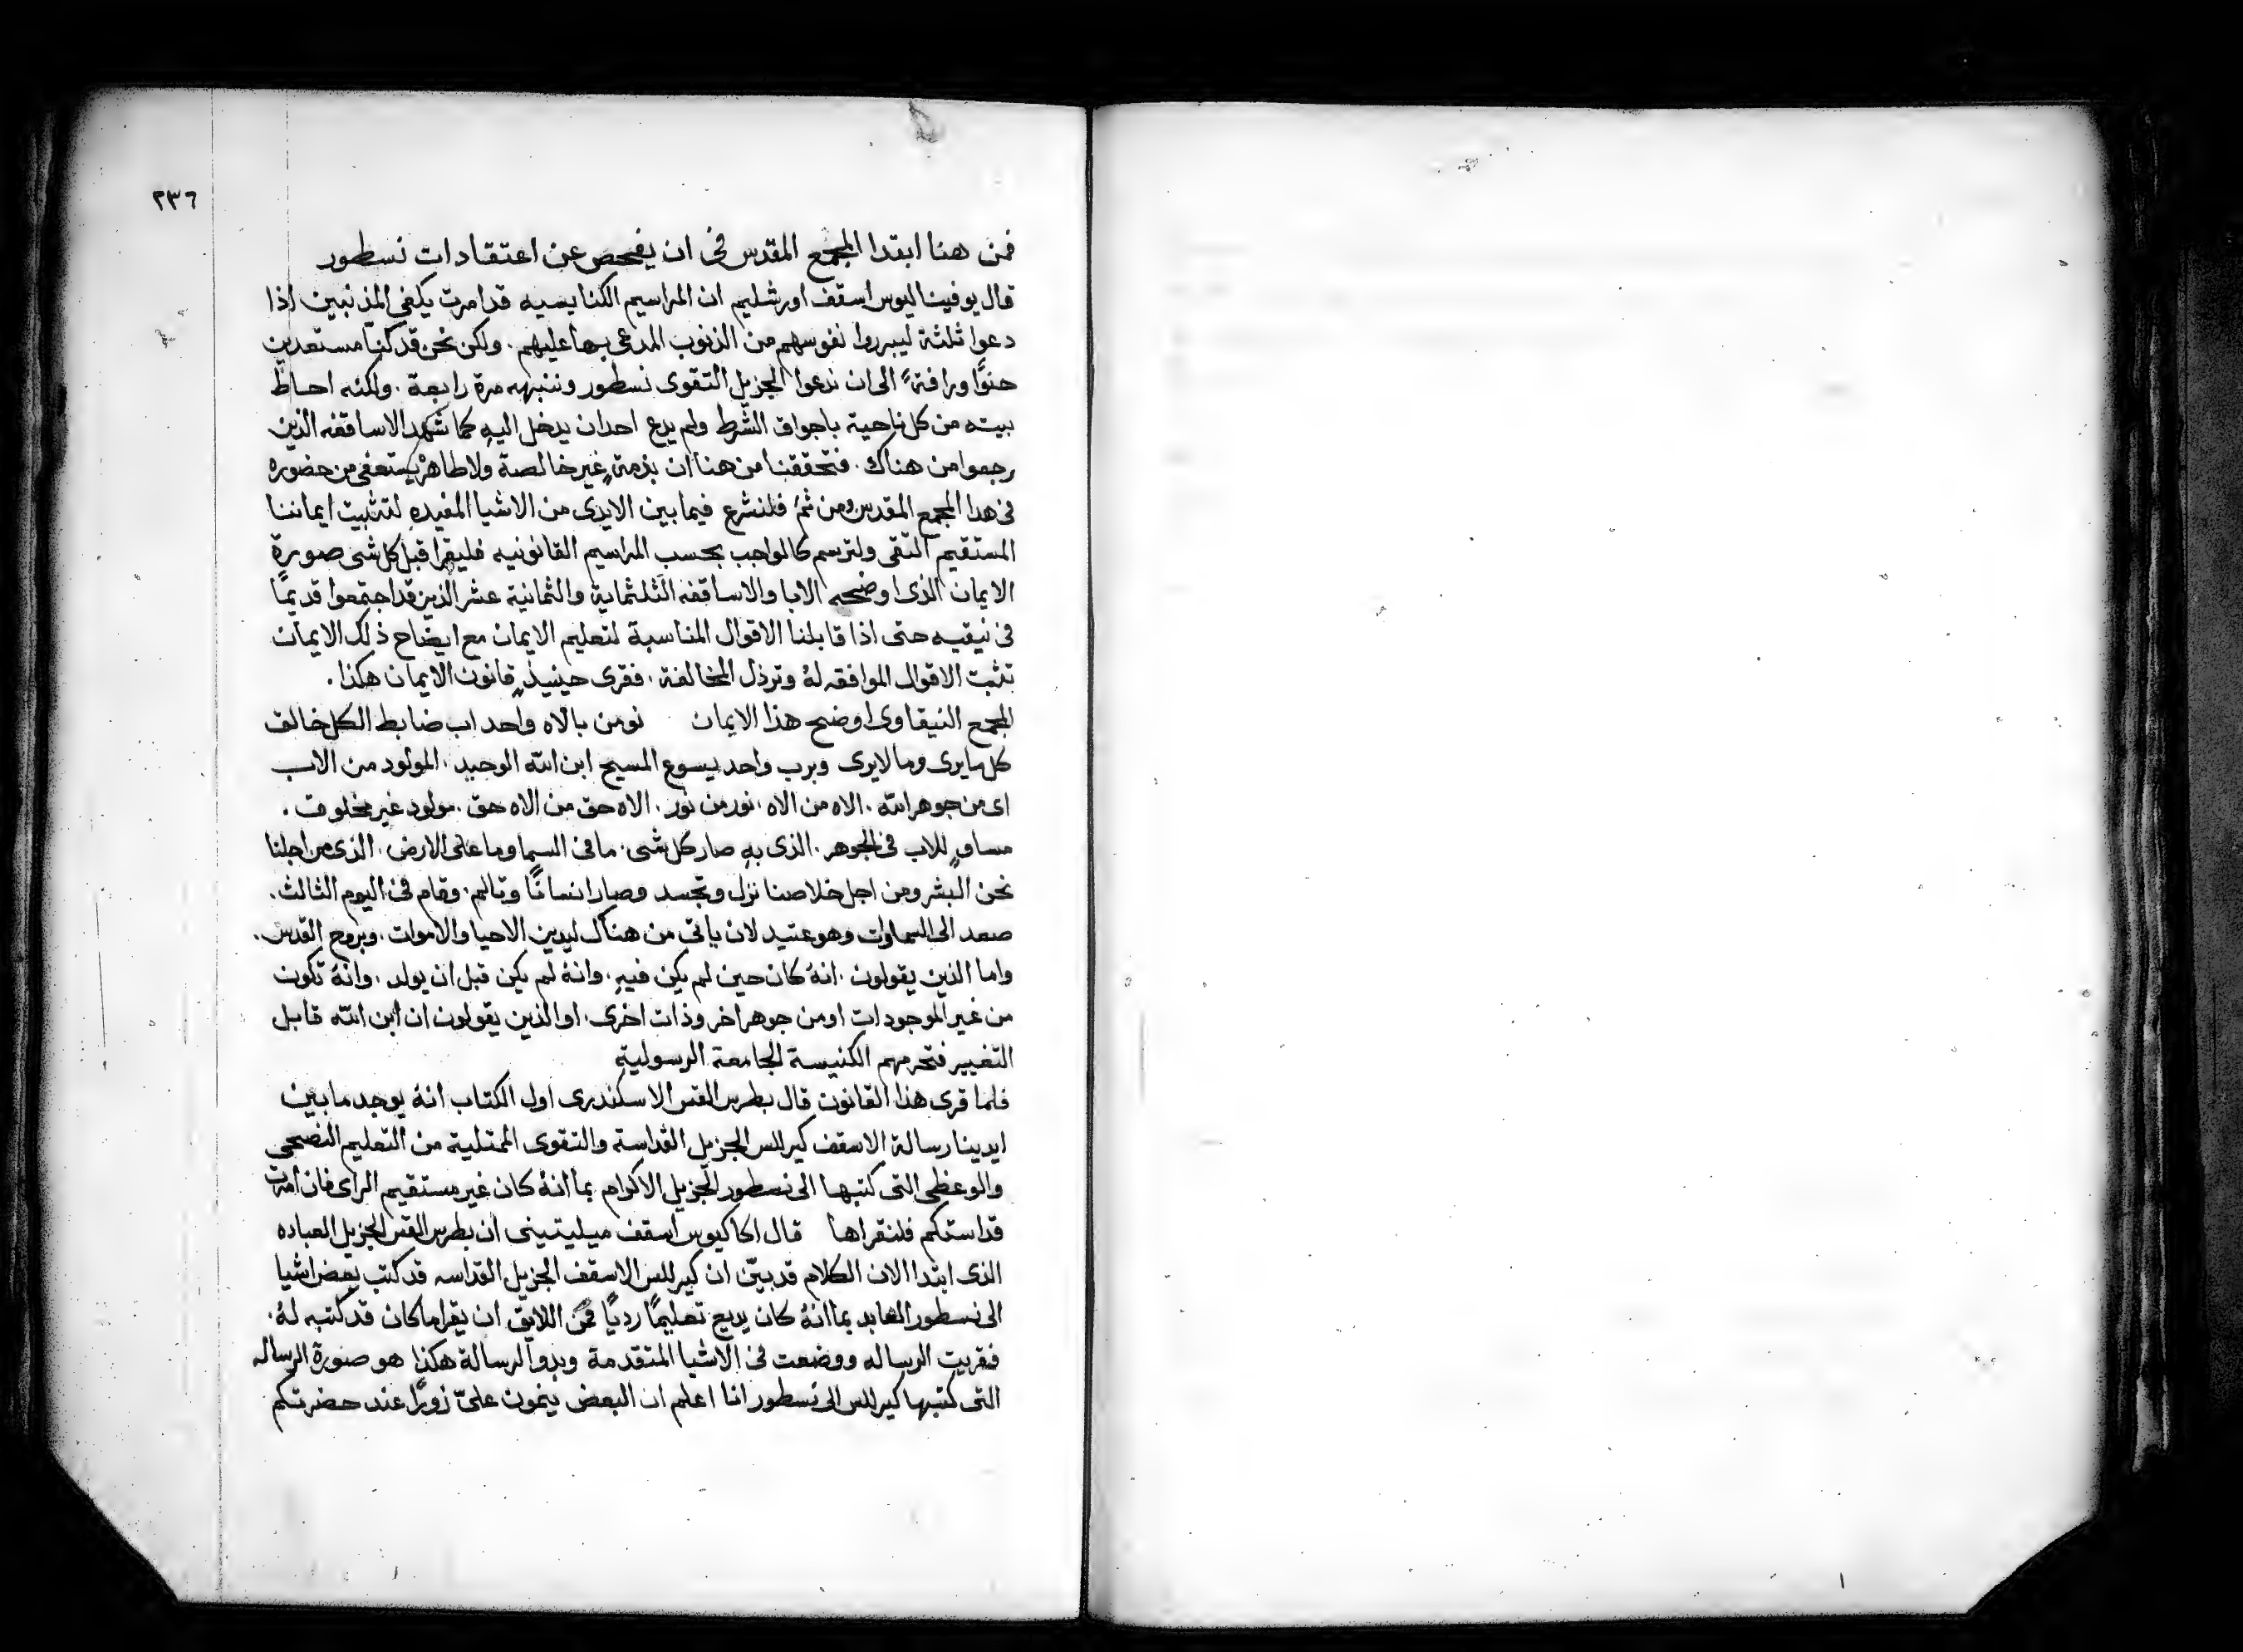 ٢٣٦
فمن هنا ابتدا المجمع المقدس فى ان يفحص عن اعتقادات نسطور
قال يوفيناليوس اسقف اورشليم ان المراسيم الكنايسيه قد امرت يكفى المذنبين اذا
دعوا ثلثة ليبرروا نفوسهم من الذنوب المدعى بها عليهم . ولكن نحن قد كنا مستعدين
حنوًا ورافةً الى ان ندعوا الجزيل التقوى نسطور وننبهه مرة رابعة . ولكنه احاط
بيته من كل ناحية باجواق الشرط ولم يدع احدان يدخل اليه كما شهد الاساقفه الذين
رجعوا من هناك . فتحققنا من هنا ان بذمةٍ غير خالصة ولا طاهرة يستعفى من حضوره
فى هدا المجمع المقدس ومن ثم فلنشرع فيما بين الايدى من الاشيا المفيده لتثبيت ايماننا
المستقيم التقى ولترسم كالواجب بحسب المراسيم القانونيه فليقرا قبل كل شى صورة
الايمان الذى اوضحه الابا والاساقفه الثلثماية والثمانية عشر الذين قد اجتمعوا قديمًا
فى نيقيه حتى اذا قابلنا الاقوال المناسبة لتعليم الايمان مع ايضاح ذلك الايمان
تثبت الاقوال الموافقه لهُ وترذل المخالفة . فقرى حينيذٍ قانون الايمان هكذا .
المجمع النيقاوى اوضح هذا الايمان نومن بالاه واحد اب ضابط الكل خالق
كل ما يرى وما لا يرى وبرب واحد يسوع المسيح ابن الله الوحيد . المولود من الاب
اى من جوهر الله . الاه من الاه . نور من نور . الاه حق من الاه حق . مولود غير مخلوق .
مساوٍ للاب فى الجوهر . الذى به صار كل شى . ما فى السما وما على الارض . الذى من اجلنا
نحن البشر ومن اجل خلاصنا نزل وتجسد وصار انسانًا وتالم . وقام فى اليوم الثالث .
صعد الى السماوات وهو عتيد لان ياتى من هناك ليدين الاحيا والاموات . وبروح القدس .
واما الذين يقولون . انهُ كان حين لم يكن فيه . وانهُ لم يكن قبل ان يولد . وانهُ تكون
من غير الموجودات او من جوهر اخر وذات اخرى . او الذين يقولون ان ابن الله قابل
التغيير فتحرمهم الكنيسة الجامعة الرسولية
فلما قرى هذا القانون قال بطرس القس الاسكندرى اول الكتاب انهُ يوجد ما بين
ايدينا رسالة الاسقف كيرللس الجزيل القداسة والتقوى الممتلية من التعليم النصحى
والوعظى التى كتبها الى نسطور الجزيل الاكرام بما انهُ كان غير مستقيم الراى فان امرت
قداستكم فلنقراها قال اكاكيوس اسقف ميليتينى ان بطرس القس الجزيل العباده
الذى ابتدا الان الكلام قد بيّن ان كيرللس الاسقف الجزيل القداسه قد كتب بعض اشيا
الى نسطور العابد بما انهُ كان يديع تعليمًا رديًا فمن اللايق ان يقرا ما كان قد كتبه لهُ .
فقريت الرساله ووضعت فى الاشيا المتقدمة وبدوا الرسالة هكذا هو صورة الرساله
التى كتبها كيرللس الى نسطور انا اعلم ان البعض ينمون علىّ زورًا عند حضرتكم